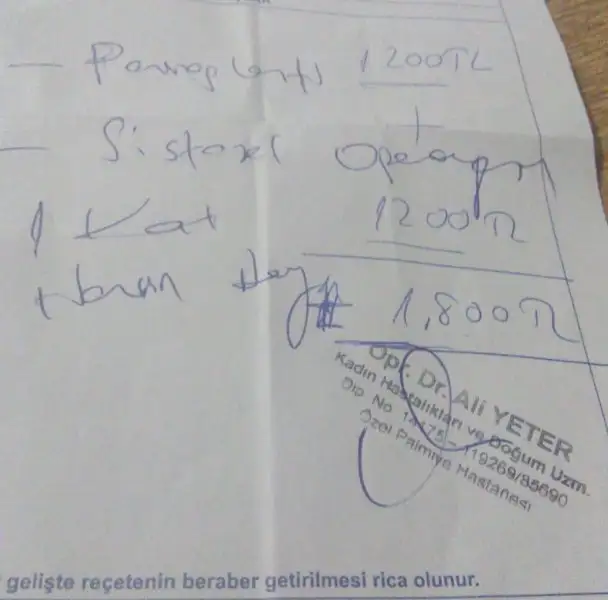 — 1200TL
+
— Sistosel Operasyon
1 Kat 1200TL
1,800TL
Opr. Dr. Ali YETER
Kadın Hastalıkları ve Doğum Uzm.
Dip No 14175 - 119269/85690
Özel Palmiye Hastanesi
gelişte reçetenin beraber getirilmesi rica olunur.